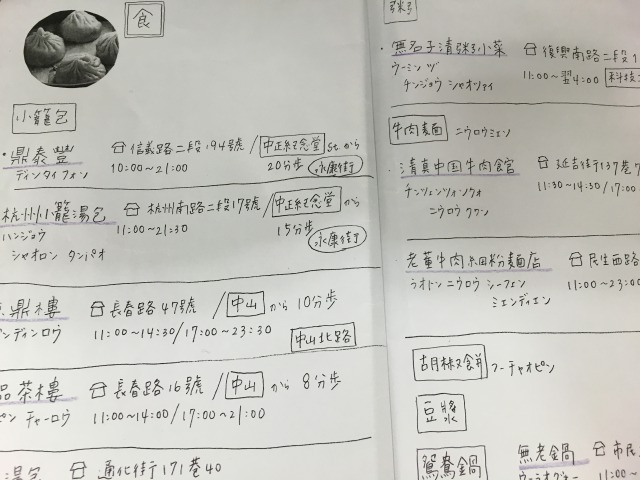 食
小籠包
・鼎泰豐 信義路二段194號/中正紀念堂St.から
ディンタイフォン 10:00~21:00 20分歩 永康街
杭州小籠湯包 杭州南路二段17號/中正紀念堂から
ハンジョウ 11:00~21:30 15分歩 永康街
シャオロン タンパオ
鼎樓 長春路47號/中山から10分歩
ンディンロウ 11:00~14:30/17:00~23:30 中山北路
品茶樓 長春路16號/中山から8分歩
ピン チャーロウ 11:00~14:00/17:00~21:00
湯包 通化街171巷40
粥
・無名子清粥小菜 復興南路二段1
ウーミンヅ 11:00~翌4:00 科技
チンジョウ シャオツァイ
牛肉麺 ニウロウミェン
・清真中国牛肉食官 延吉街137巷7
チンツェンツォンクォ 11:30~14:30/17:00
ニウロウ クワン
・老董牛肉細粉麺店 民生西路
ラオドン ニウロウ シーフェン 11:00~23:00
ミェンディエン
胡椒餅 フーチャオピン
豆漿
鴛鴦鍋 無老鍋 市民
ウーラオグォー 11:00~